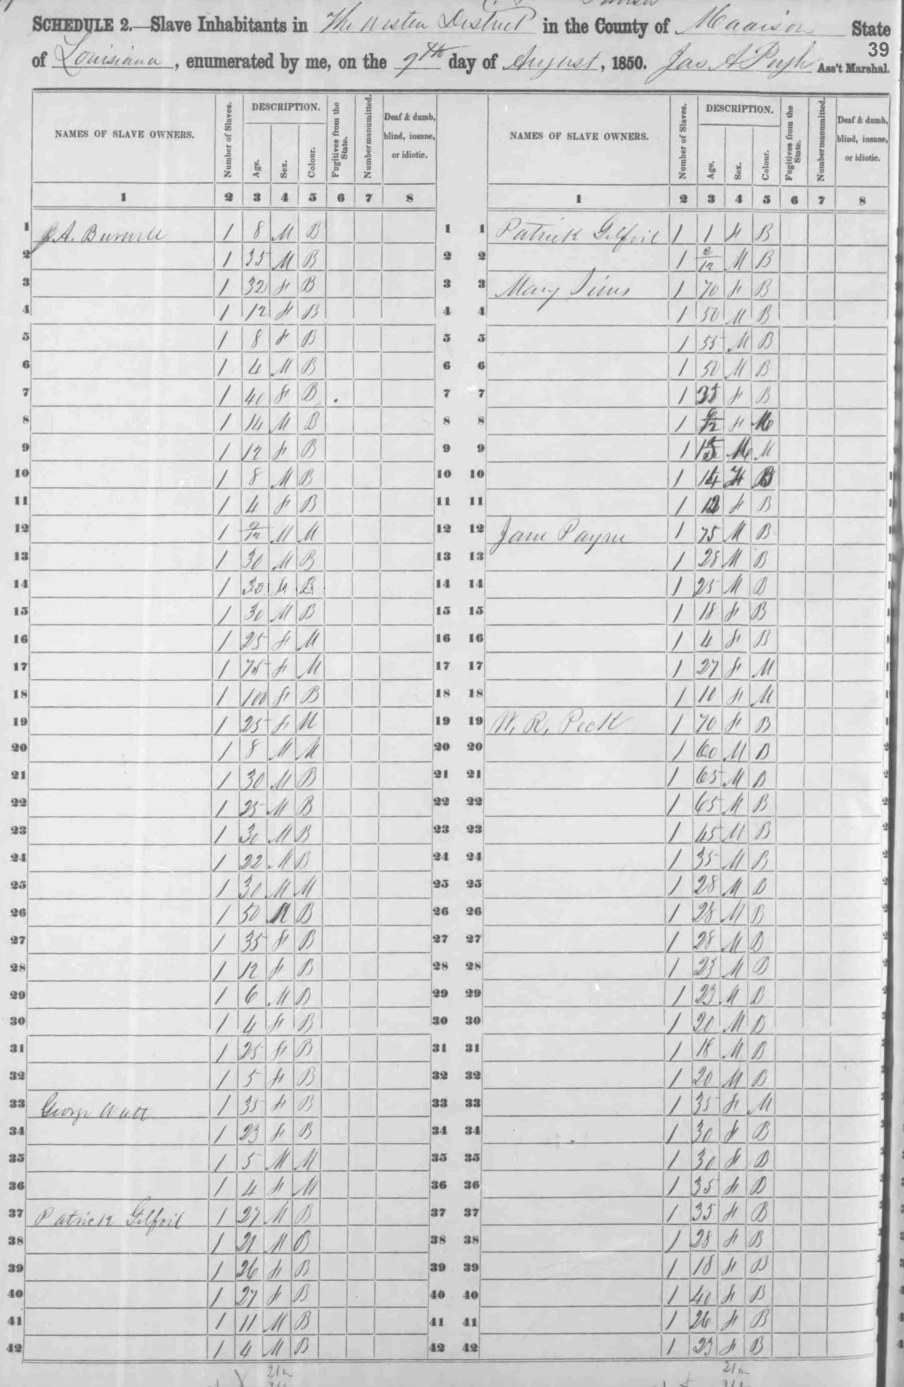 SCHEDULE 2.—Slave Inhabitants in The Western District in the County of Madison State
39
of Louisiana, enumerated by me, on the 9th day of August, 1850. Jas A Pugh Ass't Marshal.
NAMES OF SLAVE OWNERS. Number of Slaves. DESCRIPTION. Age. Sex. Colour. Fugitives from the State. Number manumitted. Deaf & dumb, blind, insane, or idiotic.
NAMES OF SLAVE OWNERS. Number of Slaves. DESCRIPTION. Age. Sex. Colour. Fugitives from the State. Number manumitted. Deaf & dumb, blind, insane, or idiotic.
1 2 3 4 5 6 7 8 1 2 3 4 5 6 7 8
1 A. 1 8 M B 1 1 Patrick Gilfoil 1 1 F B
2 1 35 M B 2 2 1 /12 M B
3 1 32 F B 3 3 Mary Sims 1 70 F B
4 1 12 F B 4 4 1 50 M B
5 1 8 F B 5 5 1 55 M B
6 1 4 M B 6 6 1 50 M B
7 1 40 F B 7 7 1 F B
8 1 14 M B 8 8 1 /12 F M
9 1 12 F B 9 9 1 M M
10 1 8 M B 10 10 1 14 F B
11 1 4 F B 11 11 1 F B
12 1 /12 M M 12 12 Jane Payne 1 75 M B
13 1 30 M B 13 13 1 28 M B
14 1 30 B 14 14 1 25 M B
15 1 30 M B 15 15 1 18 F B
16 1 25 F M 16 16 1 4 F B
17 1 75 F M 17 17 1 27 F M
18 1 100 F B 18 18 1 10 F M
19 1 25 F M 19 19 W. R. Peck 1 70 F B
20 1 8 M M 20 20 1 60 M B
21 1 30 M B 21 21 1 65 M B
22 1 25 M B 22 22 1 65 M B
23 1 30 M B 23 23 1 45 M B
24 1 22 M B 24 24 1 35 M B
25 1 30 M M 25 25 1 28 M B
26 1 50 M B 26 26 1 28 M B
27 1 35 F B 27 27 1 28 M B
28 1 12 F B 28 28 1 23 M B
29 1 6 M B 29 29 1 23 M B
30 1 4 F B 30 30 1 20 M B
31 1 25 F B 31 31 1 18 M B
32 1 5 F B 32 32 1 20 M B
33 George Watt 1 35 F B 33 33 1 35 F M
34 1 23 F B 34 34 1 30 F B
35 1 5 M M 35 35 1 30 F B
36 1 4 F M 36 36 1 35 F B
37 Patrick Gilfoil 1 27 M B 37 37 1 35 F B
38 1 21 M B 38 38 1 28 F B
39 1 26 F B 39 39 1 18 F B
40 1 27 F B 40 40 1 40 F B
41 1 11 M B 41 41 1 26 F B
42 1 4 M B 42 42 1 23 F B
21m 21m